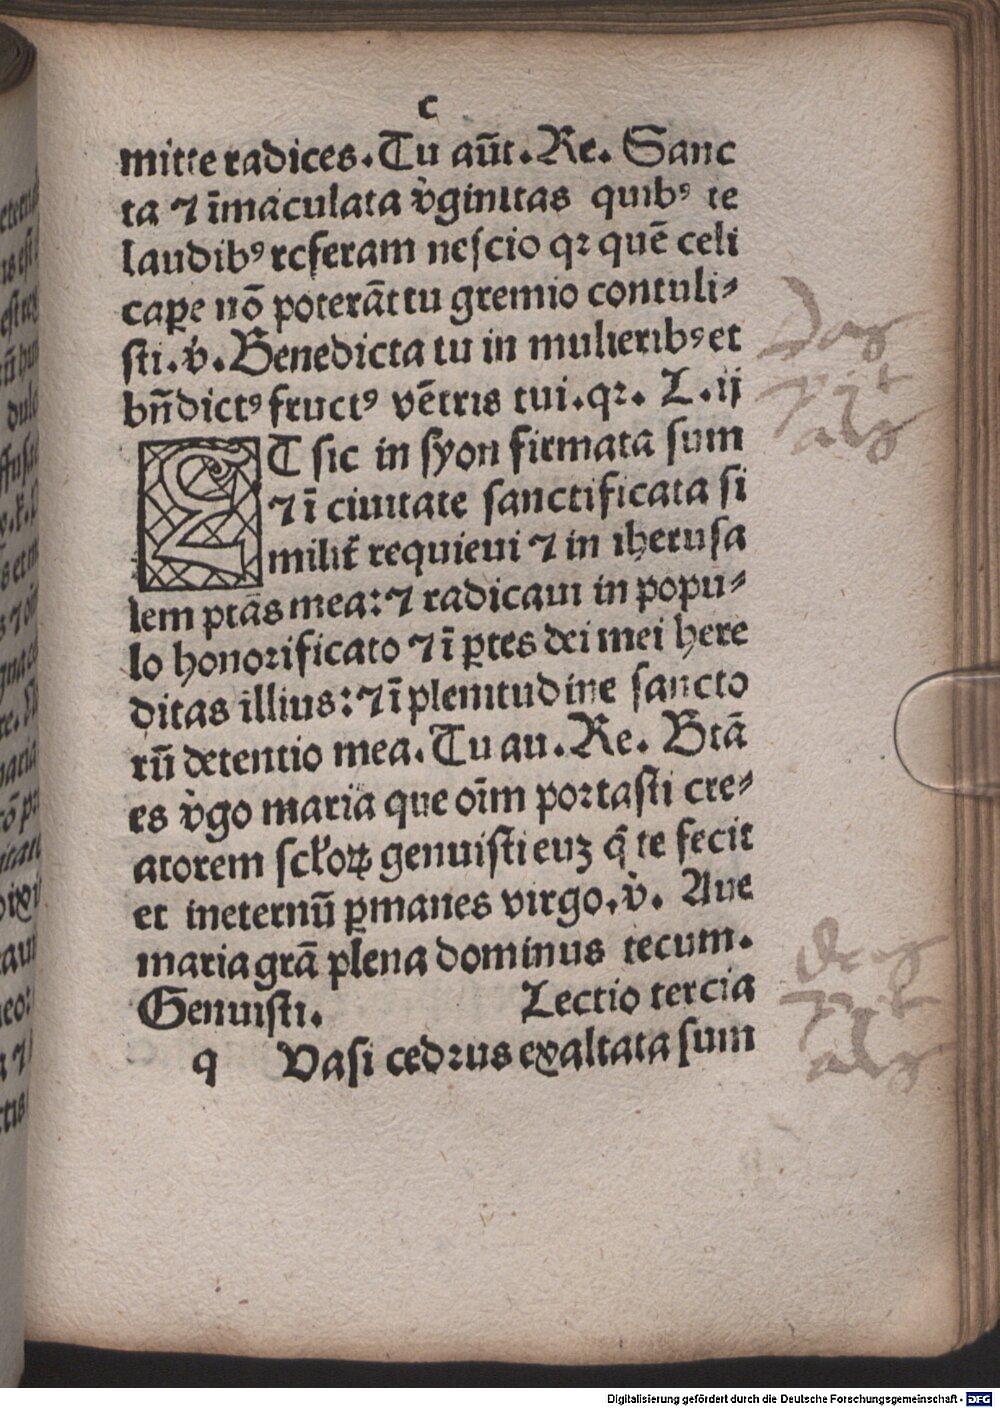 c
mitte radices. Tu aūt. Re. Sanc
ta ⁊ īmaculata v̓ginitas quibꝰ te
laudibꝰ referam nescio qꝛ quē celi
caꝑe nō poterāt tu gremio contuli⸗
sti. v̓. Benedicta tu in mulieribꝰ et
bn̄dictꝰ fructꝰ vētris tui. qꝛ. L. ij
ET sic in syon firmata sum
⁊ ī ciuitate sanctificata si
milit̓ requieui ⁊ in iherusa
lem ptās mea: ⁊ radicaui in popu⸗
lo honorificato ⁊ ī ꝑtes dei mei here
ditas illius: ⁊ ī plenitudine sancto
rū detentio mea. Tu au. Re. Btā
es v̓go maria que oīm portasti cre⸗
atorem sclōꝝ genuisti euꝫ q̄ te fecit
et ineternū ꝑmanes virgo. v̓. Aue
maria grā plena dominus tecum.
Genuisti. Lectio tercia
q Uasi cedrus exaltata sum
Digitalisierung gefördert durch die Deutsche Forschungsgemeinschaft - DFG